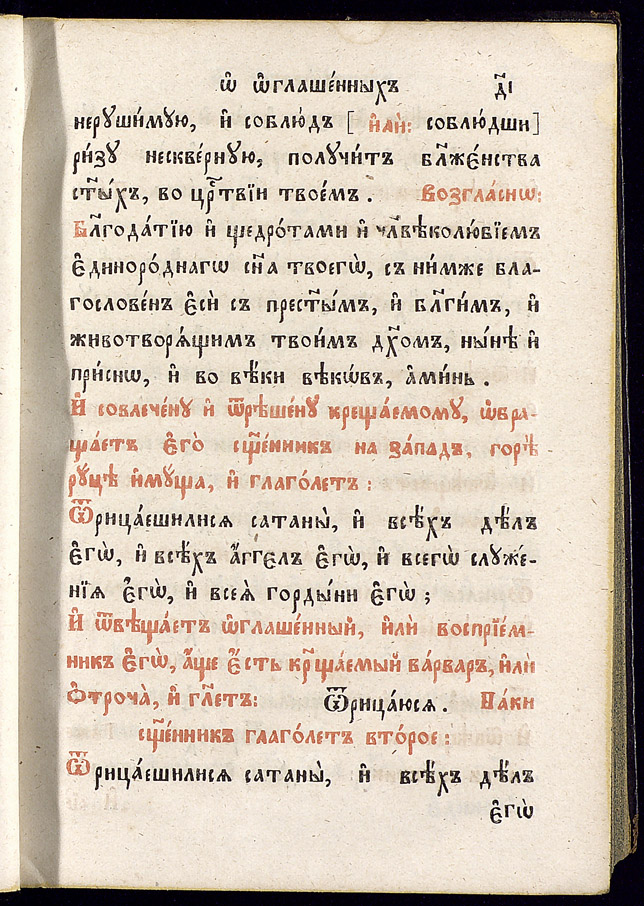 Ѡ҆ ѡ҆глаше́нныхъ д҃і
неруши́мую, и҆ соблю́дъ [и҆лѝ: соблю́дши]
ри́зу нескве́рную, получи́тъ бл҃же́нства
ст҃ы́хъ, во црⷭ҇твїи твое́мъ. Возгла́снѡ:
Бл҃года́тїю и҆ щедро́тами и҆ чл҃вѣколю́бїемъ
є҆диноро́днагѡ сн҃а твоегѡ̀, съ ни́мже бла-
гослове́нъ є҆сѝ съ прест҃ы́мъ, и҆ бл҃ги́мъ, и҆
животворѧ́щимъ твои́мъ дх҃омъ, ны́нѣ и҆
при́снѡ, и҆ во вѣ́ки вѣкѡ́въ, а҆ми́нь.
И҆ совлече́ну и҆ ѿрѣше́ну креща́емому, ѡ҆бра-
ща́етъ є҆го̀ сщ҃е́нникъ на за́падъ, горѣ̀
ру́цѣ и҆му́ща, и҆ глаго́летъ:
Ѿрица́ешилисѧ сатаны̀, и҆ всѣ́хъ дѣ́лъ
є҆гѡ̀, и҆ всѣ́хъ а҆́ггелъ є҆гѡ̀, и҆ всегѡ̀ служе́-
нїѧ є҆гѡ̀, и҆ всеѧ̀ горды́ни є҆гѡ̀;
И҆ ѿвѣща́етъ ѡ҆глаше́нный, и҆лѝ воспрїе́м-
никъ є҆гѡ̀, а҆́ще є҆́сть кр҃ща́емый ва́рваръ, и҆лѝ
ѻ҆троча̀, и҆ гл҃етъ: Ѿрица́юсѧ. Па́ки
сщ҃е́нникъ глаго́летъ второ́е:
Ѿрица́ешилисѧ сатаны̀, и҆ всѣ́хъ дѣ́лъ
є҆гѡ̀